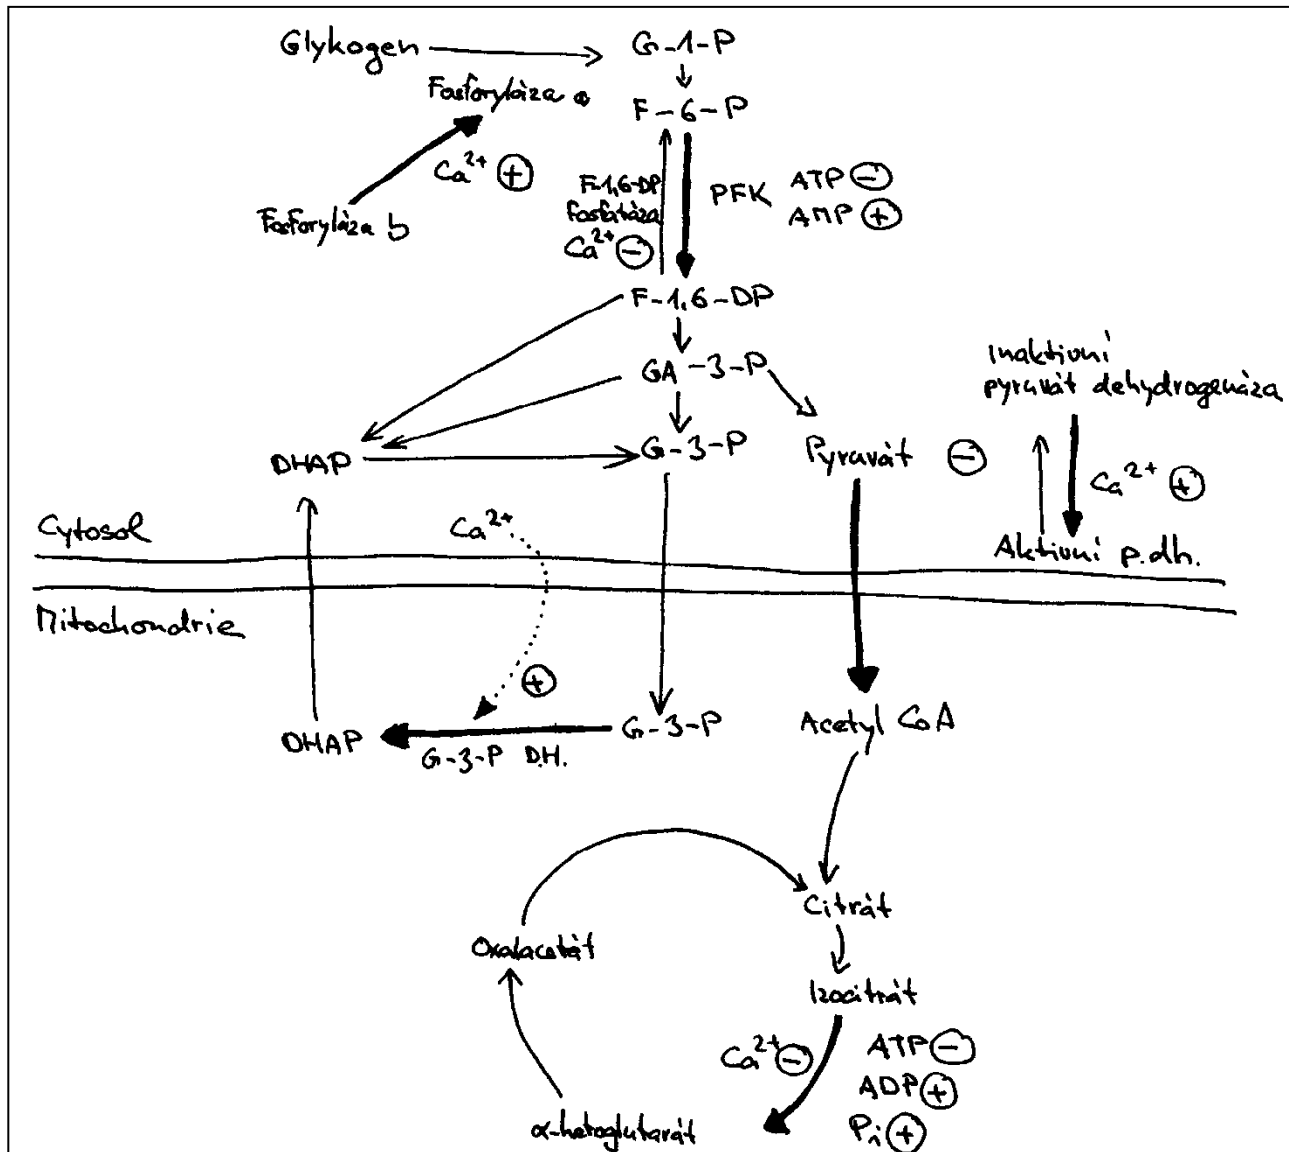 Glykogen
G-1-P
Fosforyláza a
F-6-P
Ca²⁺ ⊕
Fosforyláza b
F-1,6-DP
fosfatáza
Ca²⁺ ⊖
PFK
ATP ⊖
AMP ⊕
F-1,6-DP
GA-3-P
Inaktivní
pyruvát dehydrogenáza
DHAP
G-3-P
Pyruvát ⊖
Ca²⁺ ⊕
Cytosol
Ca²⁺
Aktivní p.dh.
Mitochondrie
⊕
DHAP
G-3-P D.H.
G-3-P
Acetyl CoA
Citrát
Oxalacetát
Izocitrát
Ca²⁺ ⊖
ATP ⊖
ADP ⊕
Pi ⊕
α-ketoglutarát